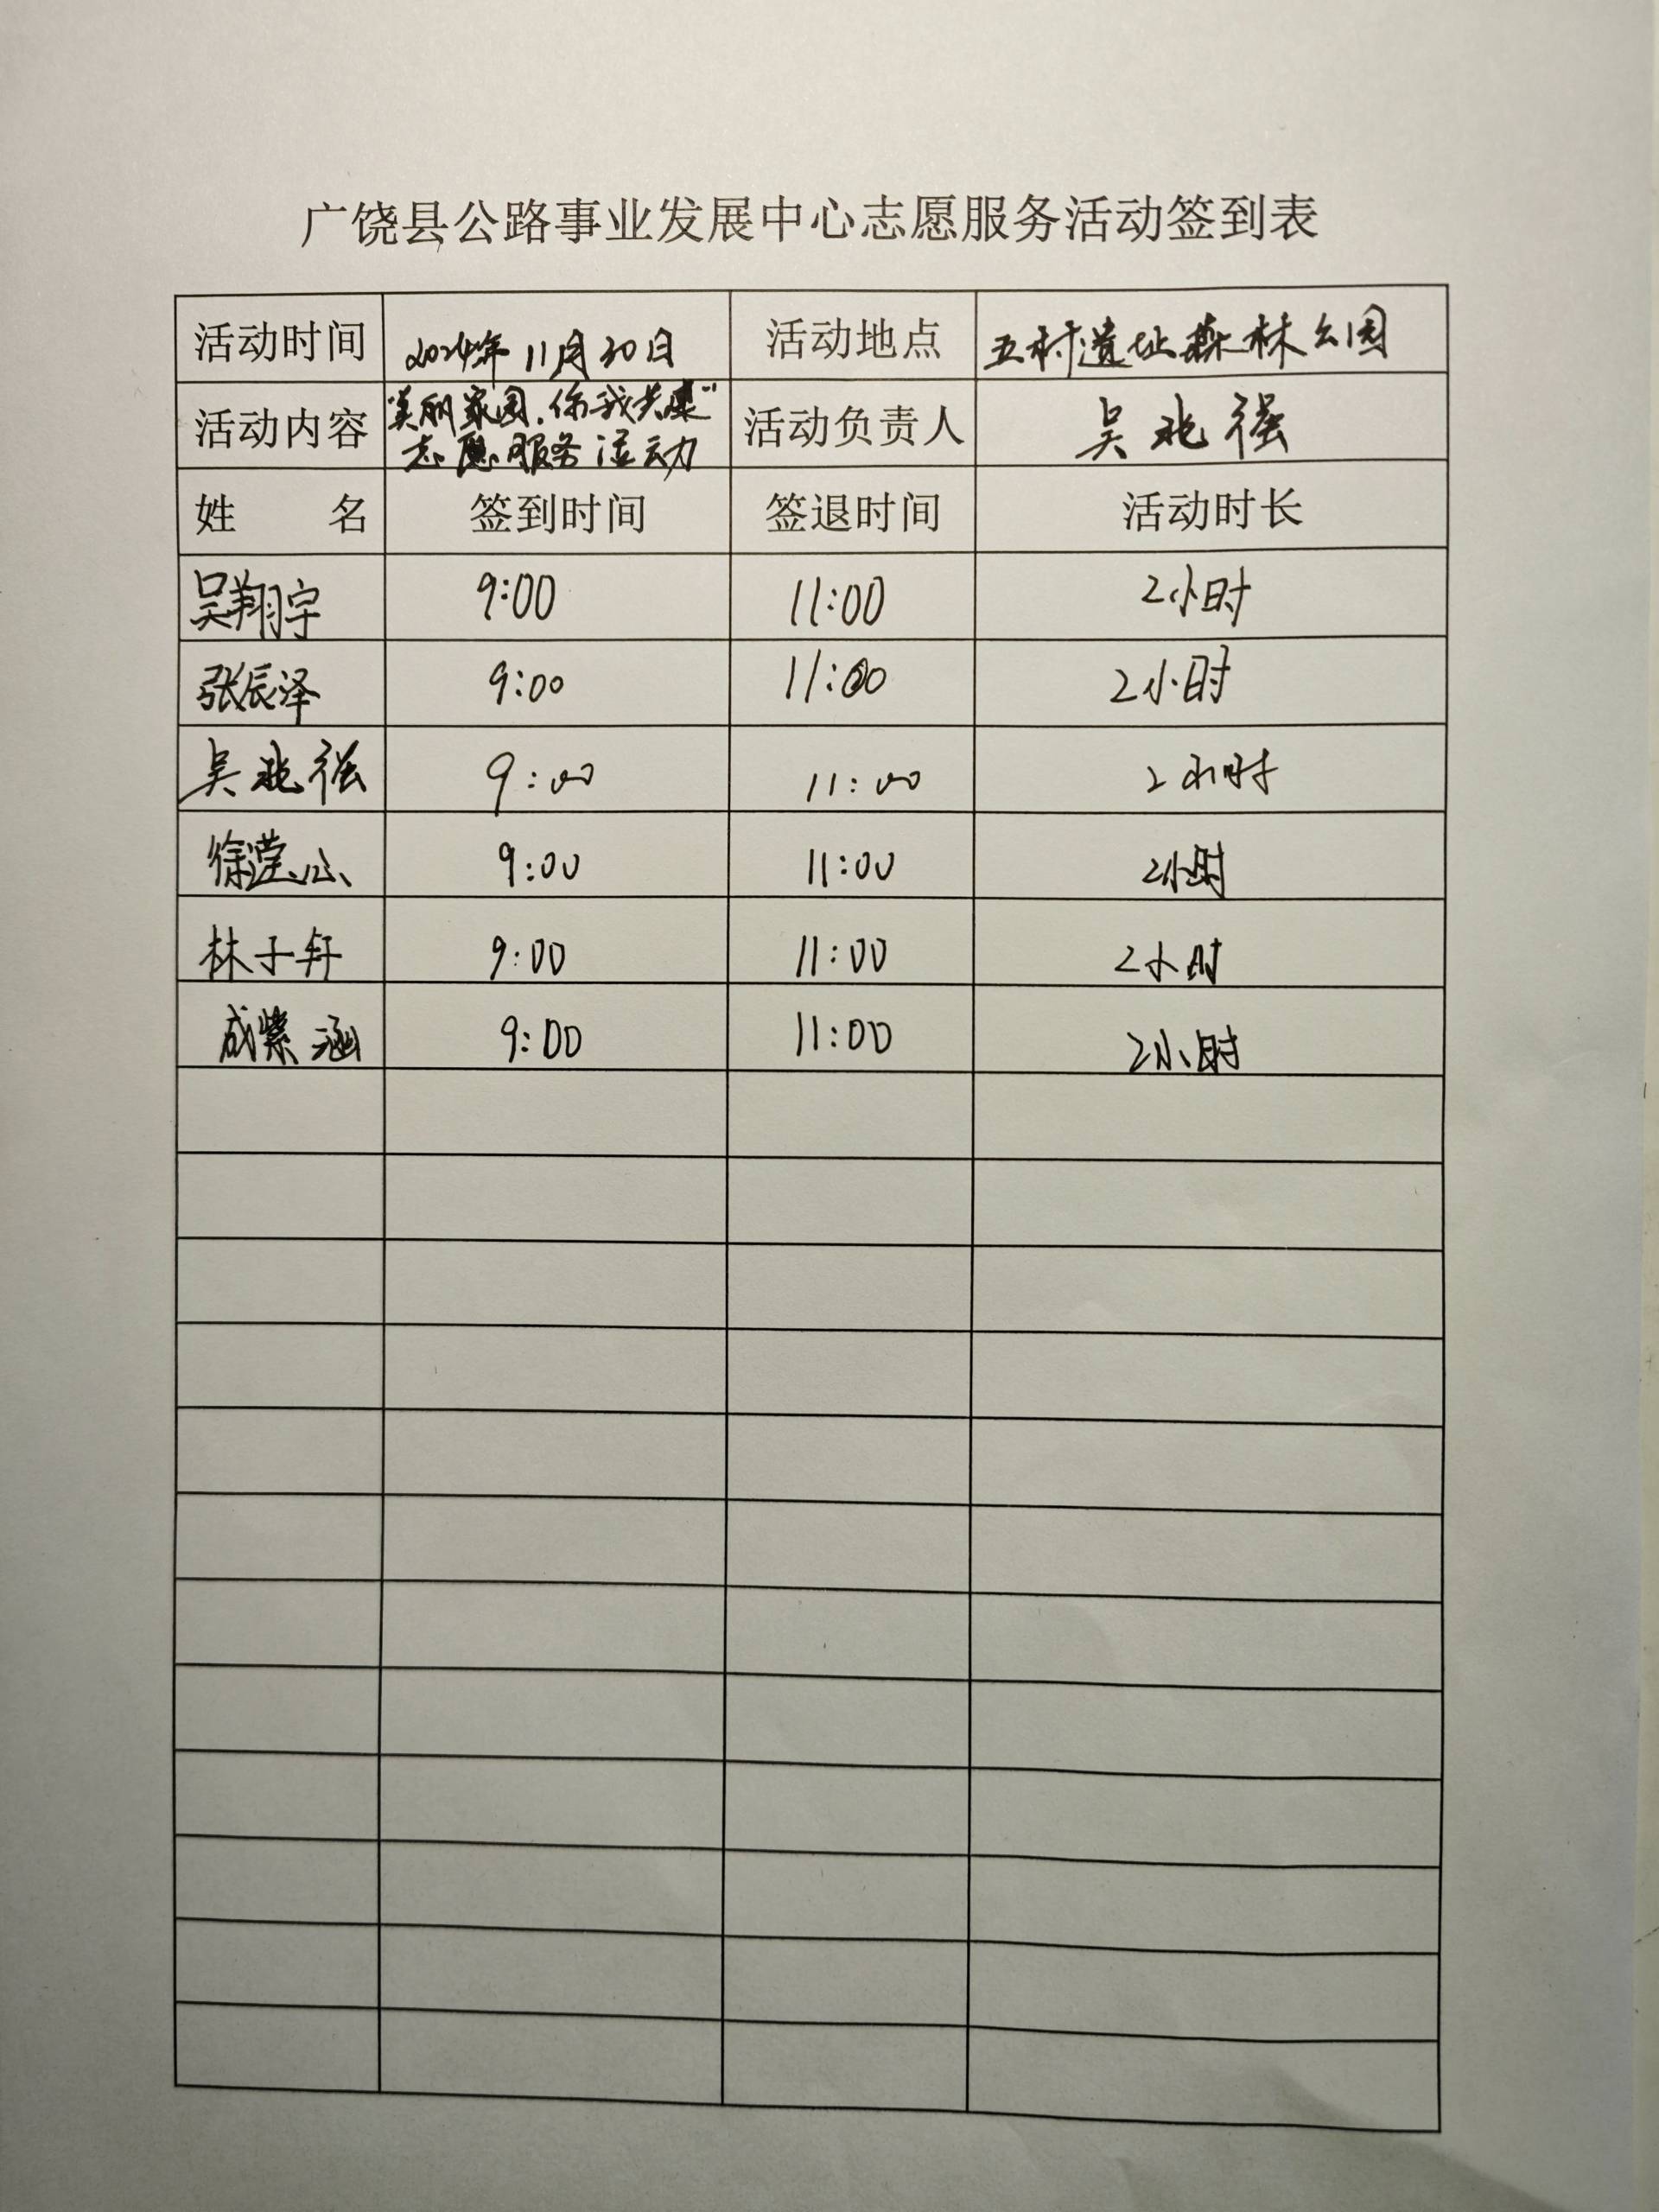 广饶县公路事业发展中心志愿服务活动签到表
活动时间 2024年11月30日 活动地点 五村遗址森林公园
活动内容 “美丽家园,你我共建” 志愿服务活动 活动负责人 吴兆强
姓 名 签到时间 签退时间 活动时长
吴翔宇 9:00 11:00 2小时
张辰泽 9:00 11:00 2小时
吴兆强 9:00 11:00 2小时
徐滢心 9:00 11:00 2小时
林子轩 9:00 11:00 2小时
成紫涵 9:00 11:00 2小时